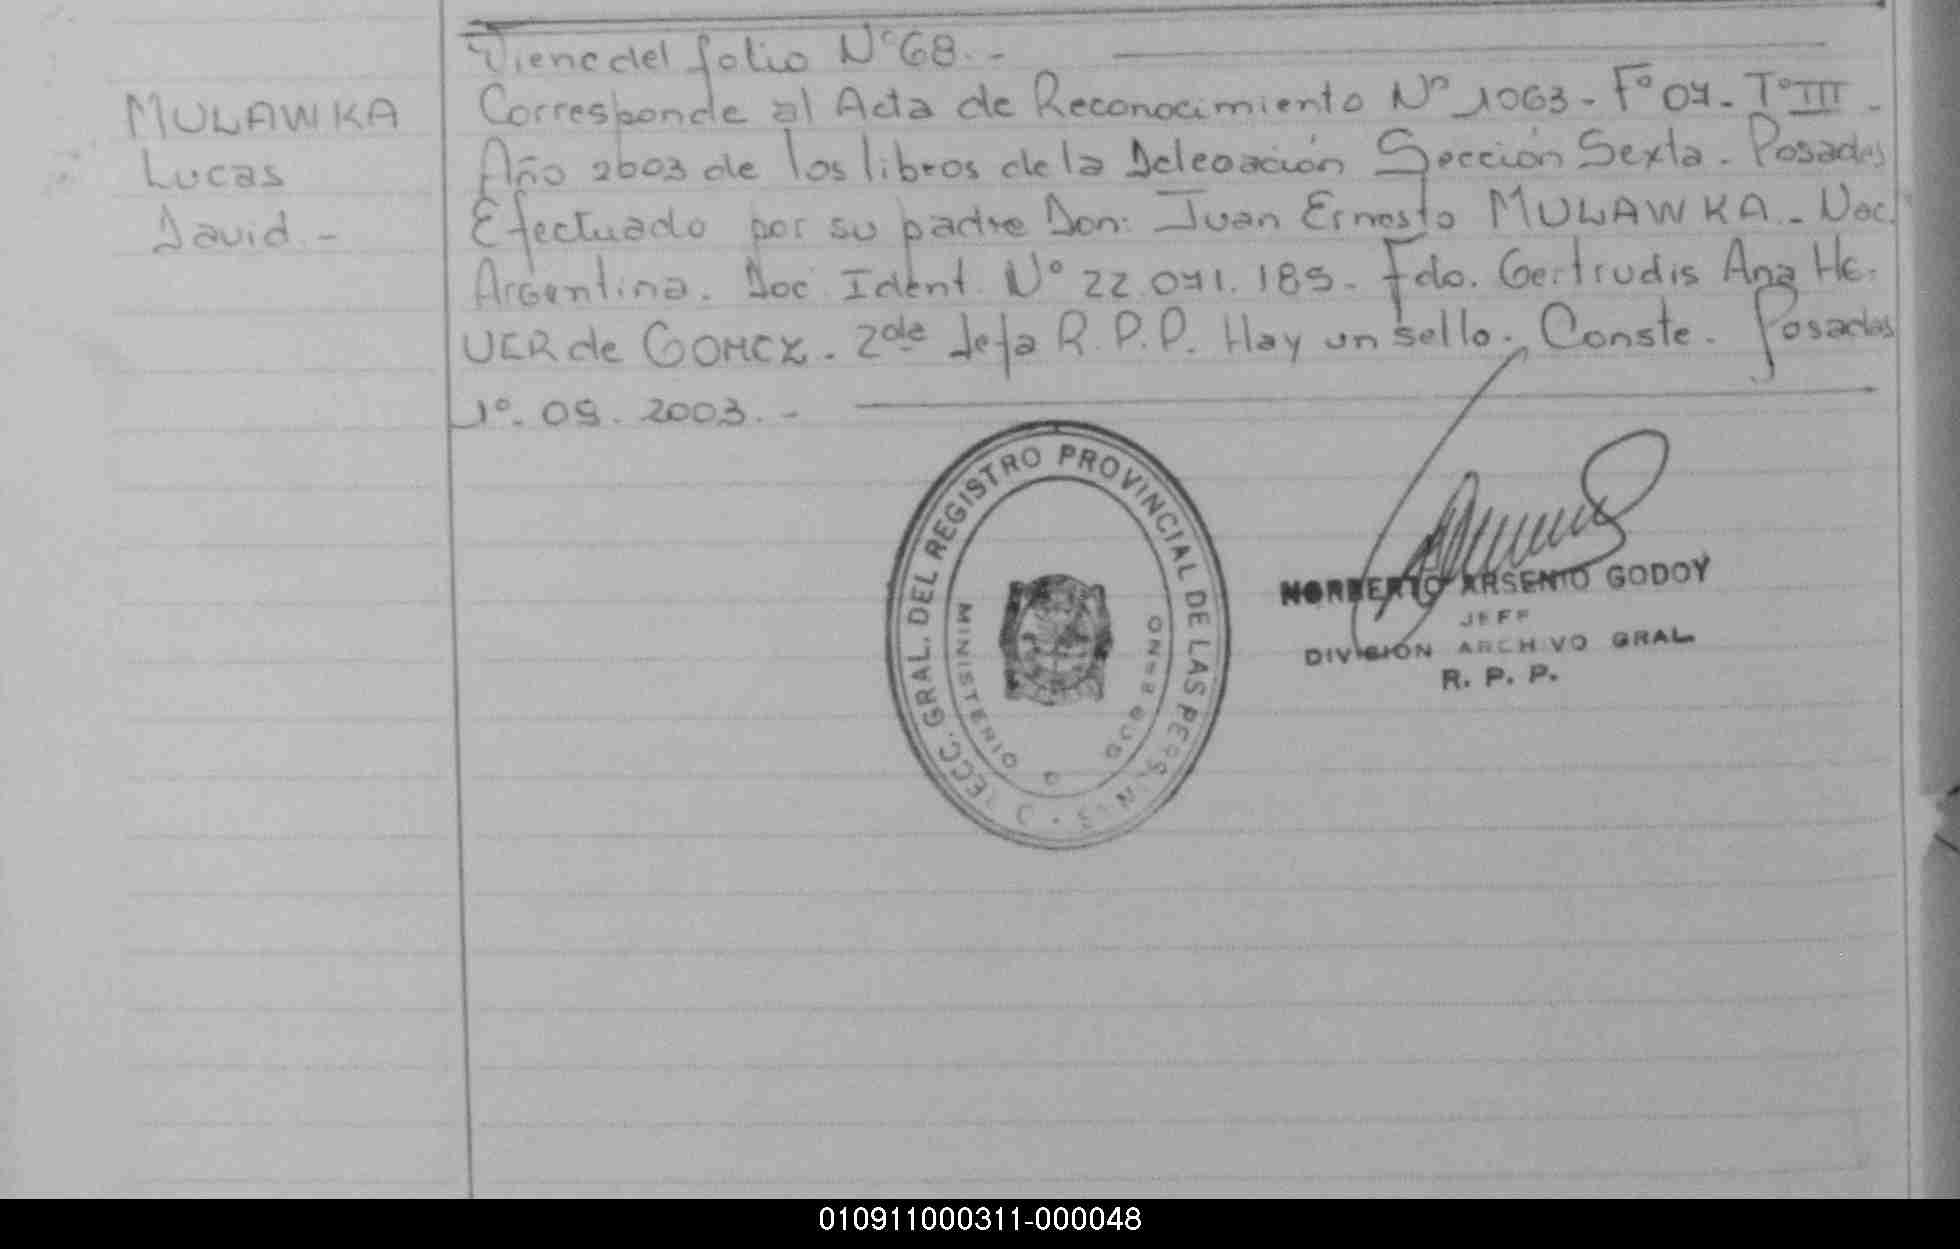 Viene del folio Nº 68.-
MULAWKA
Lucas
David.-
Corresponde al Acta de Reconocimiento Nº 1063 - Fº 07 - Tº III -
Año 2003 de los libros de la Delegación Sección Sexta. Posadas
Efectuado por su padre Don: Juan Ernesto MULAWKA - Nac.
Argentina. Doc. Ident. Nº 22.071.185 - Fdo. Gertrudis Ana HE-
UER de GOMEZ. 2da Jefa R.P.P. Hay un sello. Conste. Posadas
1º. 09. 2003. -
DIRECC. GRAL. DEL REGISTRO PROVINCIAL DE LAS PERS.
MINISTERIO GOBIERNO
NORBERTO ARSENIO GODOY
JEFE
DIVISION ARCHIVO GRAL.
R. P. P.
010911000311-000048